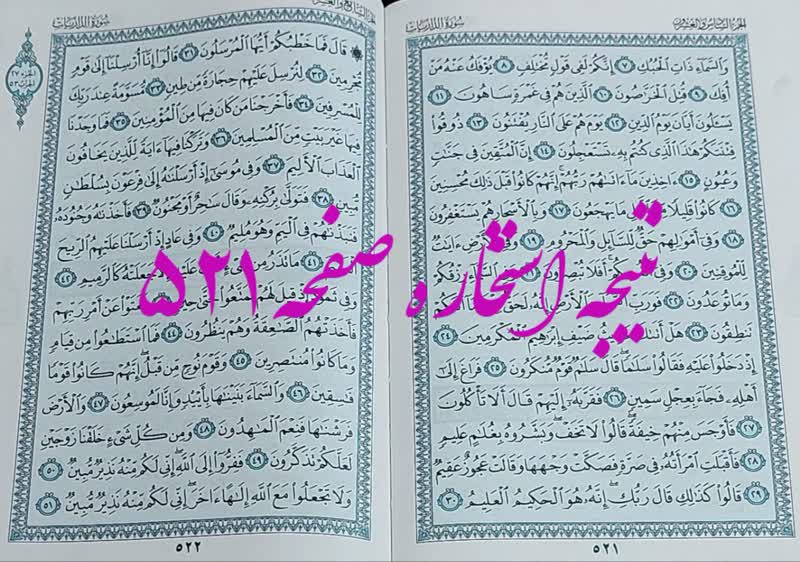 الجزء السادس والعشرون
سورة الذاريات
وَالسَّمَاءِ ذَاتِ الْحُبُكِ ٧ إِنَّكُمْ لَفِي قَوْلٍ مُّخْتَلِفٍ ٨ يُؤْفَكُ عَنْهُ مَنْ
أُفِكَ ٩ قُتِلَ الْخَرَّاصُونَ ١٠ الَّذِينَ هُمْ فِي غَمْرَةٍ سَاهُونَ ١١
يَسْأَلُونَ أَيَّانَ يَوْمُ الدِّينِ ١٢ يَوْمَ هُمْ عَلَى النَّارِ يُفْتَنُونَ ١٣ ذُوقُوا
فِتْنَتَكُمْ هَٰذَا الَّذِي كُنتُم بِهِ تَسْتَعْجِلُونَ ١٤ إِنَّ الْمُتَّقِينَ فِي جَنَّاتٍ
وَعُيُونٍ ١٥ آخِذِينَ مَا آتَاهُمْ رَبُّهُمْ إِنَّهُمْ كَانُوا قَبْلَ ذَٰلِكَ مُحْسِنِينَ
١٦ كَانُوا قَلِيلًا مَا يَهْجَعُونَ ١٧ وَبِالْأَسْحَارِ هُمْ يَسْتَغْفِرُونَ
١٨ وَفِي أَمْوَالِهِمْ حَقٌّ لِّلسَّائِلِ وَالْمَحْرُومِ ١٩ وَفِي الْأَرْضِ آيَاتٌ
لِّلْمُوقِنِينَ ٢٠ وَفِي أَفَلَا تُبْصِرُونَ رِزْقُكُمْ
وَمَا تُوعَدُونَ ٢٢ فَوَرَبِّ وَالْأَرْضِ إِنَّهُ لَحَقٌّ أَنَّكُمْ
تَنطِقُونَ ٢٣ هَلْ أَتَاكَ ضَيْفِ إِبْرَاهِيمَ الْمُكْرَمِينَ ٢٤
إِذْ دَخَلُوا عَلَيْهِ فَقَالُوا سَلَامًا قَالَ سَلَامٌ قَوْمٌ مُّنكَرُونَ ٢٥ فَرَاغَ إِلَىٰ
أَهْلِهِ فَجَاءَ بِعِجْلٍ سَمِينٍ ٢٦ فَقَرَّبَهُ إِلَيْهِمْ قَالَ أَلَا تَأْكُلُونَ
٢٧ فَأَوْجَسَ مِنْهُمْ خِيفَةً قَالُوا لَا تَخَفْ وَبَشَّرُوهُ بِغُلَامٍ عَلِيمٍ
٢٨ فَأَقْبَلَتِ امْرَأَتُهُ فِي صَرَّةٍ فَصَكَّتْ وَجْهَهَا وَقَالَتْ عَجُوزٌ عَقِيمٌ
٢٩ قَالُوا كَذَٰلِكِ قَالَ رَبُّكِ إِنَّهُ هُوَ الْحَكِيمُ الْعَلِيمُ ٣٠
٥٢١
سورة الذاريات
الجزء السابع والعشرون
الجزء ٢٧
الحزب ٥٣
قَالَ فَمَا خَطْبُكُمْ أَيُّهَا الْمُرْسَلُونَ ٣١ قَالُوا إِنَّا أُرْسِلْنَا إِلَىٰ قَوْمٍ
مُّجْرِمِينَ ٣٢ لِنُرْسِلَ عَلَيْهِمْ حِجَارَةً مِّن طِينٍ ٣٣ مُّسَوَّمَةً عِندَ رَبِّكَ
لِلْمُسْرِفِينَ ٣٤ فَأَخْرَجْنَا مَن كَانَ فِيهَا مِنَ الْمُؤْمِنِينَ ٣٥ فَمَا وَجَدْنَا
فِيهَا غَيْرَ بَيْتٍ مِّنَ الْمُسْلِمِينَ ٣٦ وَتَرَكْنَا فِيهَا آيَةً لِّلَّذِينَ يَخَافُونَ
الْعَذَابَ الْأَلِيمَ ٣٧ وَفِي مُوسَىٰ إِذْ أَرْسَلْنَاهُ إِلَىٰ فِرْعَوْنَ بِسُلْطَانٍ
مُّبِينٍ ٣٨ فَتَوَلَّىٰ بِرُكْنِهِ وَقَالَ سَاحِرٌ أَوْ مَجْنُونٌ ٣٩ فَأَخَذْنَاهُ وَجُنُودَهُ
فَنَبَذْنَاهُمْ فِي الْيَمِّ وَهُوَ مُلِيمٌ ٤٠ وَفِي عَادٍ إِذْ أَرْسَلْنَا عَلَيْهِمُ الرِّيحَ
٤١ مَا تَذَرُ مِن شَيْءٍ جَعَلَتْهُ كَالرَّمِيمِ ٤٢
وَفِي ثَمُودَ إِذْ قِيلَ لَهُمْ تَمَتَّعُوا حَتَّىٰ عَنْ أَمْرِ رَبِّهِمْ
فَأَخَذَتْهُمُ الصَّاعِقَةُ وَهُمْ يَنظُرُونَ ٤٤ فَمَا اسْتَطَاعُوا مِن قِيَامٍ
وَمَا كَانُوا مُنتَصِرِينَ ٤٥ وَقَوْمَ نُوحٍ مِّن قَبْلُ إِنَّهُمْ كَانُوا قَوْمًا
فَاسِقِينَ ٤٦ وَالسَّمَاءَ بَنَيْنَاهَا بِأَيْيدٍ وَإِنَّا لَمُوسِعُونَ ٤٧ وَالْأَرْضَ
فَرَشْنَاهَا فَنِعْمَ الْمَاهِدُونَ ٤٨ وَمِن كُلِّ شَيْءٍ خَلَقْنَا زَوْجَيْنِ
لَعَلَّكُمْ تَذَكَّرُونَ ٤٩ فَفِرُّوا إِلَى اللَّهِ إِنِّي لَكُم مِّنْهُ نَذِيرٌ مُّبِينٌ ٥٠
وَلَا تَجْعَلُوا مَعَ اللَّهِ إِلَٰهًا آخَرَ إِنِّي لَكُم مِّنْهُ نَذِيرٌ مُّبِينٌ ٥١
٥٢٢
نتیجه استخاره صفحه ۵۲۱